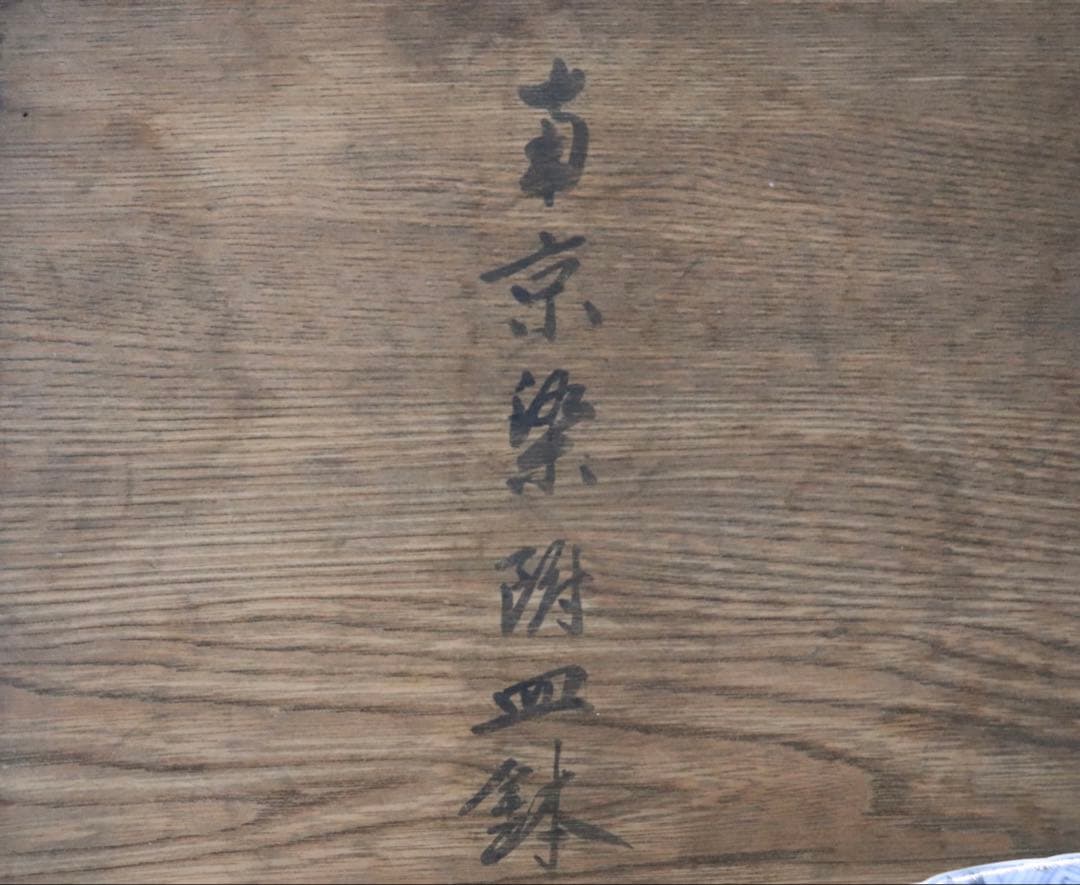 南京染附皿鉢